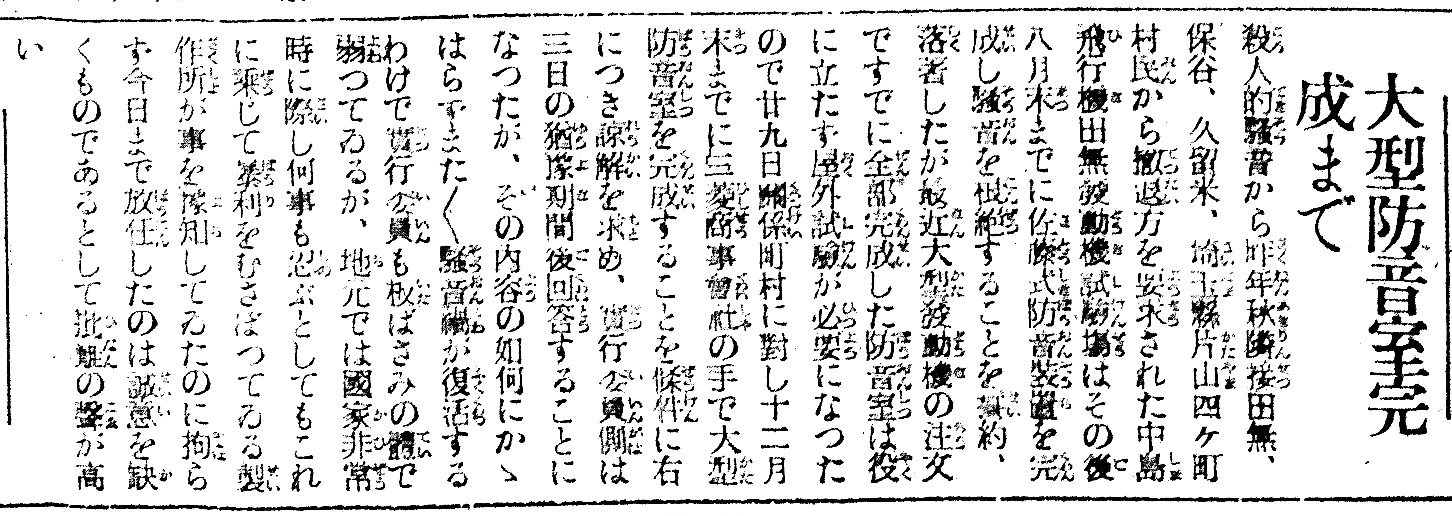 大型防音室完
成まで
殺人的騷音から昨年秋隣接田無、
保谷、久留米、埼玉縣片山四ヶ町
村民から撤退方を要求された中島
飛行機田無發動機試驗場はその後
八月末までに佐藤式防音裝置を完
成し騷音を杜絶することを契約、
落著したが最近大型發動機の注文
ですでに全部完成した防音室は役
に立たず屋外試驗が必要になつた
ので廿九日關係町村に對し十二月
末までに三菱商事會社の手で大型
防音室を完成することを條件に右
につき諒解を求め、實行委員側は
三日の猶豫期間後回答することに
なつたが、その内容の如何にかゝ
はらずまた〱騷音禍が復活する
わけで實行委員も板ばさみの體で
弱つてゐるが、地元では國家非常
時に際し何事も忍ぶとしてもこれ
に乘じて暴利をむさぼつてゐる製
作所が事を豫知してゐたのに拘ら
ず今日まで放任したのは誠意を缺
くものであるとして批難の聲が高
い